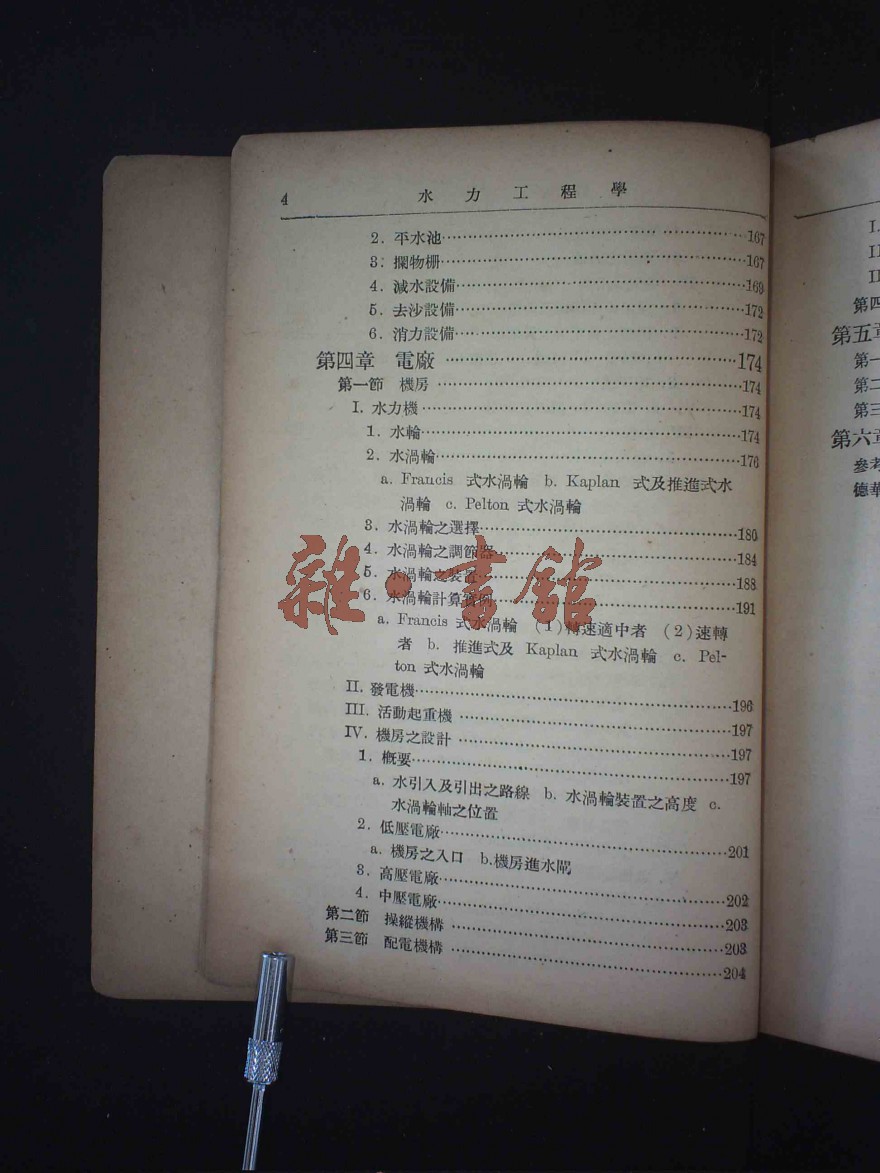 4 水力工程學
2. 平水池 167
3. 攔物柵 167
4. 減水設備 169
5. 去沙設備 172
6. 消力設備 172
第四章 電廠 174
第一節 機房 174
I. 水力機 174
1. 水輪 174
2. 水渦輪 176
a. Francis 式水渦輪 b. Kaplan 式及推進式水
渦輪 c. Pelton 式水渦輪
3. 水渦輪之選擇 180
4. 水渦輪之調節器 184
5. 水渦輪之裝置 188
6. 水渦輪計算實例 191
a. Francis 式水渦輪 (1)轉速適中者 (2)速轉
者 b. 推進式及 Kaplan 式水渦輪 c. Pel-
ton 式水渦輪
II. 發電機 196
III. 活動起重機 197
IV. 機房之設計 197
1. 概要 197
a. 水引入及引出之路線 b. 水渦輪裝置之高度 c.
水渦輪軸之位置
2. 低壓電廠 201
a. 機房之入口 b.機房進水閘
3. 高壓電廠 202
4. 中壓電廠 203
第二節 操縱機構 203
第三節 配電機構 204
雜·書館
I.
第四
第五章
第一
第二
第三
第六章
參考
德華